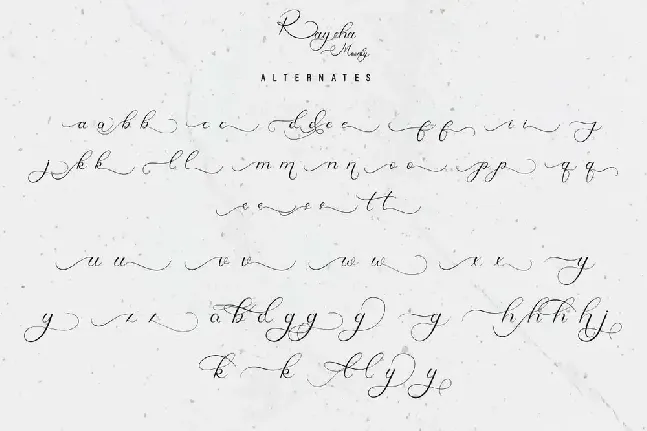 Raysha
Mounly
ALTERNATES
a a b b c c d d e e f f i i j
j k k l l m m n n o o p p q q
t t
u u v v w w x x y
y z z a b d g g g g h h h h j
k k l l y y